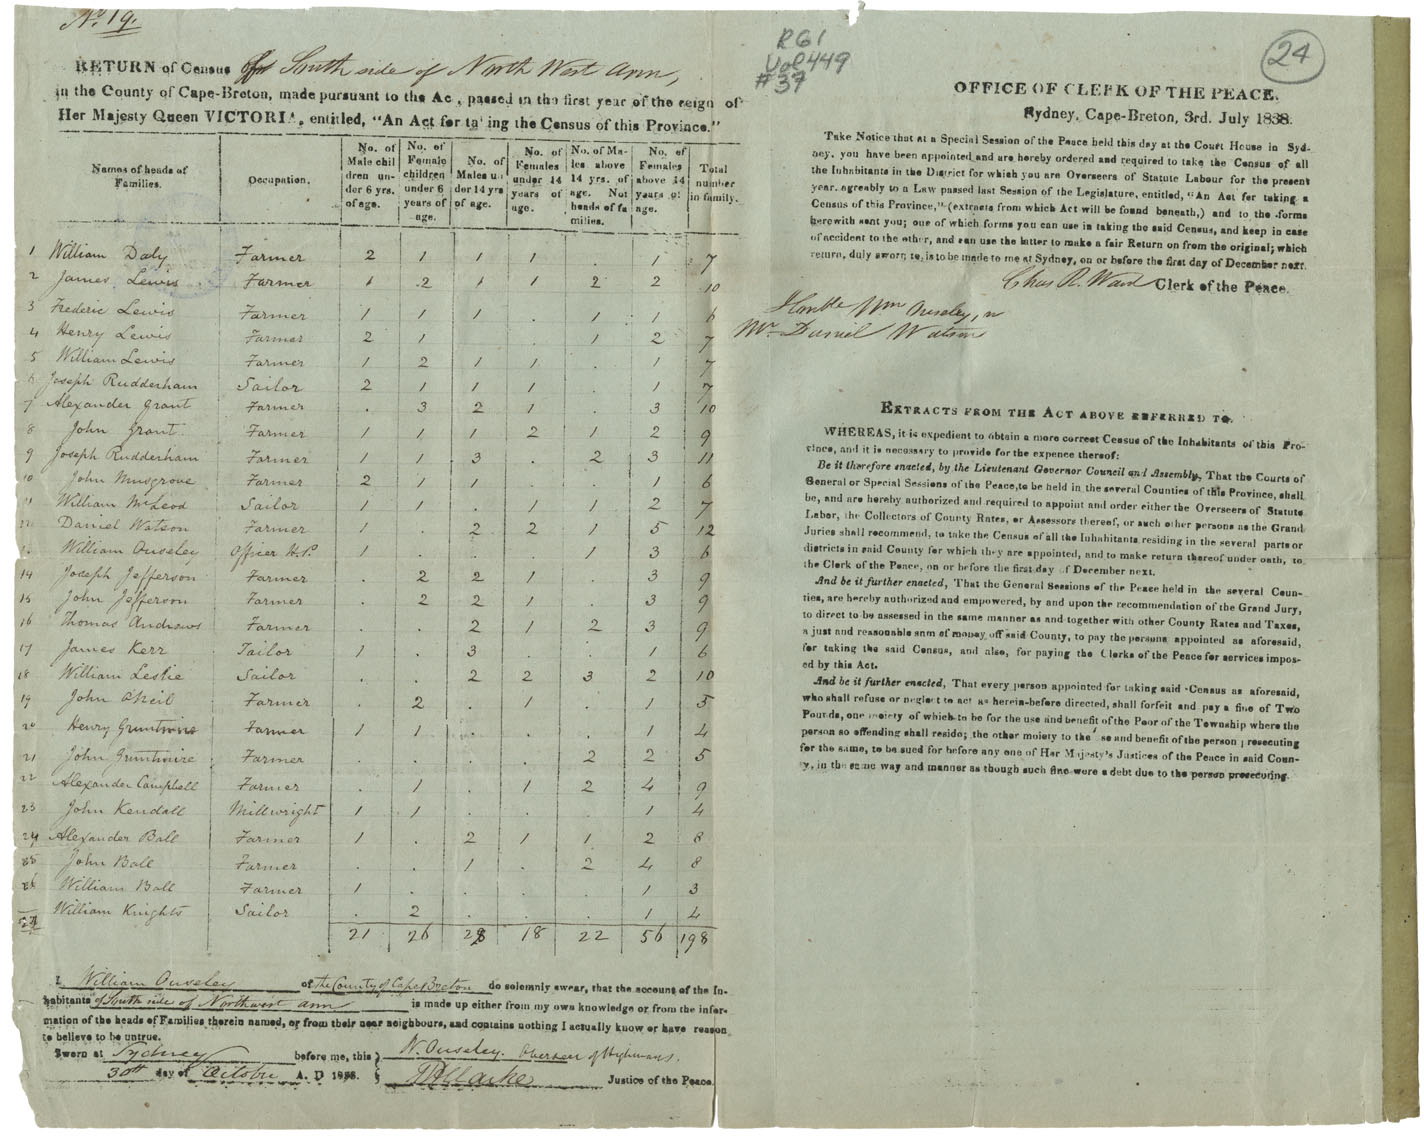 No. 19.
RETURN of Census Of South side of North West Arm,
in the County of Cape-Breton, made pursuant to the Ac, passed in the first year of the reign of
Her Majesty Queen VICTORIA, entitled, "An Act for ta'ing the Census of this Province."
Names of heads of Families. | Occupation. | No. of Male chil dren un- der 6 yrs. of age. | No. of Female children under 6 years of age. | No. of Males un der 14 yrs of age. | No. of Females under 14 years of age. | No. of Ma- les above 14 yrs. of age. Not heads of fa milies. | No. of Females above 14 years of age. | Total number in family.
1 William Daly Farmer 2 1 1 1 . 1 7
2 James Lewis Farmer 1 2 1 1 2 2 10
3 Frederic Lewis Farmer 1 1 1 . 1 1 6
4 Henry Lewis Farmer 2 1 . . 1 2 7
5 William Lewis Farmer 1 2 1 1 . 1 7
6 Joseph Rudderham Sailor 2 1 1 1 . 1 7
7 Alexander Grant Farmer . 3 2 1 . 3 10
8 John Grant Farmer 1 1 1 2 1 2 9
9 Joseph Rudderham Farmer 1 1 3 . 2 3 11
10 John Musgrove Farmer 2 1 1 . . 1 6
11 William McLeod Sailor 1 1 . 1 1 2 7
12 Daniel Watson Farmer 1 . 2 2 1 5 12
William Ouseley Officer H.P. 1 . . . 1 3 6
14 Joseph Jefferson Farmer . 2 2 1 . 3 9
15 John Jefferson Farmer . 2 2 1 . 3 9
16 Thomas Andrews Farmer . . 2 1 2 3 9
17 James Kerr Tailor 1 . 3 . . 1 6
18 William Leslie Sailor . . 2 2 3 2 10
19 John ONeil Farmer . 2 . 1 . 1 5
20 Henry Gruntwine Farmer 1 1 . . . 1 4
21 John Gruntwine Farmer . . . . 2 2 5
22 Alexander Campbell Farmer . 1 . 1 2 4 9
23 John Kendall Millwright 1 1 . . . 1 4
24 Alexander Ball Farmer 1 . 2 1 1 2 8
25 John Ball Farmer . . 1 . 2 4 8
26 William Ball Farmer 1 . . . . 1 3
27 William Knights Sailor . 2 . . . 1 4
21 26 28 18 22 56 198
I William Ouseley of the County of Cape Breton do solemnly swear, that the account of the In-
habitants of South side of Northwest arm is made up either from my own knowledge or from the infor-
mation of the heads of Families therein named, or from their near neighbours, and contains nothing I actually know or have reason
to believe to be untrue.
Sworn at Sydney before me, this } W. Ouseley. Overseer of Highways.
30th day of October A. D 1838. } Justice of the Peace.
RG1
Vol 449
#37
24
OFFICE OF CLERK OF THE PEACE.
Sydney, Cape-Breton, 3rd. July 1838.
Take Notice that at a Special Session of the Peace held this day at the Court House in Syd-
ney, you have been appointed and are hereby ordered and required to take the Census of all
the Inhabitants in the District for which you are Overseers of Statute Labour for the present
year, agreably to a Law passed last Session of the Legislature, entitled, "An Act for taking a
Census of this Province," (extracts from which Act will be found beneath,) and to the forms
herewith sent you; one of which forms you can use in taking the said Census, and keep in case
of accident to the other, and can use the latter to make a fair Return on from the original; which
return, duly sworn to, is to be made to me at Sydney, on or before the first day of December next.
Chas R. Ward Clerk of the Peace.
Honble Wm Ouseley, or
Mr. Daniel Watson
EXTRACTS FROM THE ACT ABOVE REFERRED TO.
WHEREAS, it is expedient to obtain a more correct Census of the Inhabitants of this Pro-
vince, and it is necessary to provide for the expence thereof:
Be it therefore enacted, by the Lieutenant Governor Council and Assembly, That the Courts of
General or Special Sessions of the Peace, to be held in the several Counties of this Province, shall
be, and are hereby authorized and required to appoint and order either the Overseers of Statute
Labor, the Collectors of County Rates, or Assessors thereof, or such other persons as the Grand
Juries shall recommend, to take the Census of all the Inhabitants residing in the several parts or
districts in said County for which they are appointed, and to make return thereof under oath, to
the Clerk of the Peace, on or before the first day of December next.
And be it further enacted, That the General Sessions of the Peace held in the several Coun-
ties, are hereby authorized and empowered, by and upon the recommendation of the Grand Jury,
to direct to be assessed in the same manner as and together with other County Rates and Taxes,
a just and reasonable sum of money, off said County, to pay the persons appointed as aforesaid,
for taking the said Census, and also, for paying the Clerks of the Peace for services impos-
ed by this Act.
And be it further enacted, That every person appointed for taking said Census as aforesaid,
who shall refuse or neglect to act as herein-before directed, shall forfeit and pay a fine of Two
Pounds, one moiety of which to be for the use and benefit of the Poor of the Township where the
person so offending shall reside; the other moiety to the se and benefit of the person prosecuting
for the same, to be sued for before any one of Her Majesty's Justices of the Peace in said Coun-
ty, in the same way and manner as though such fine were a debt due to the person prosecuting.